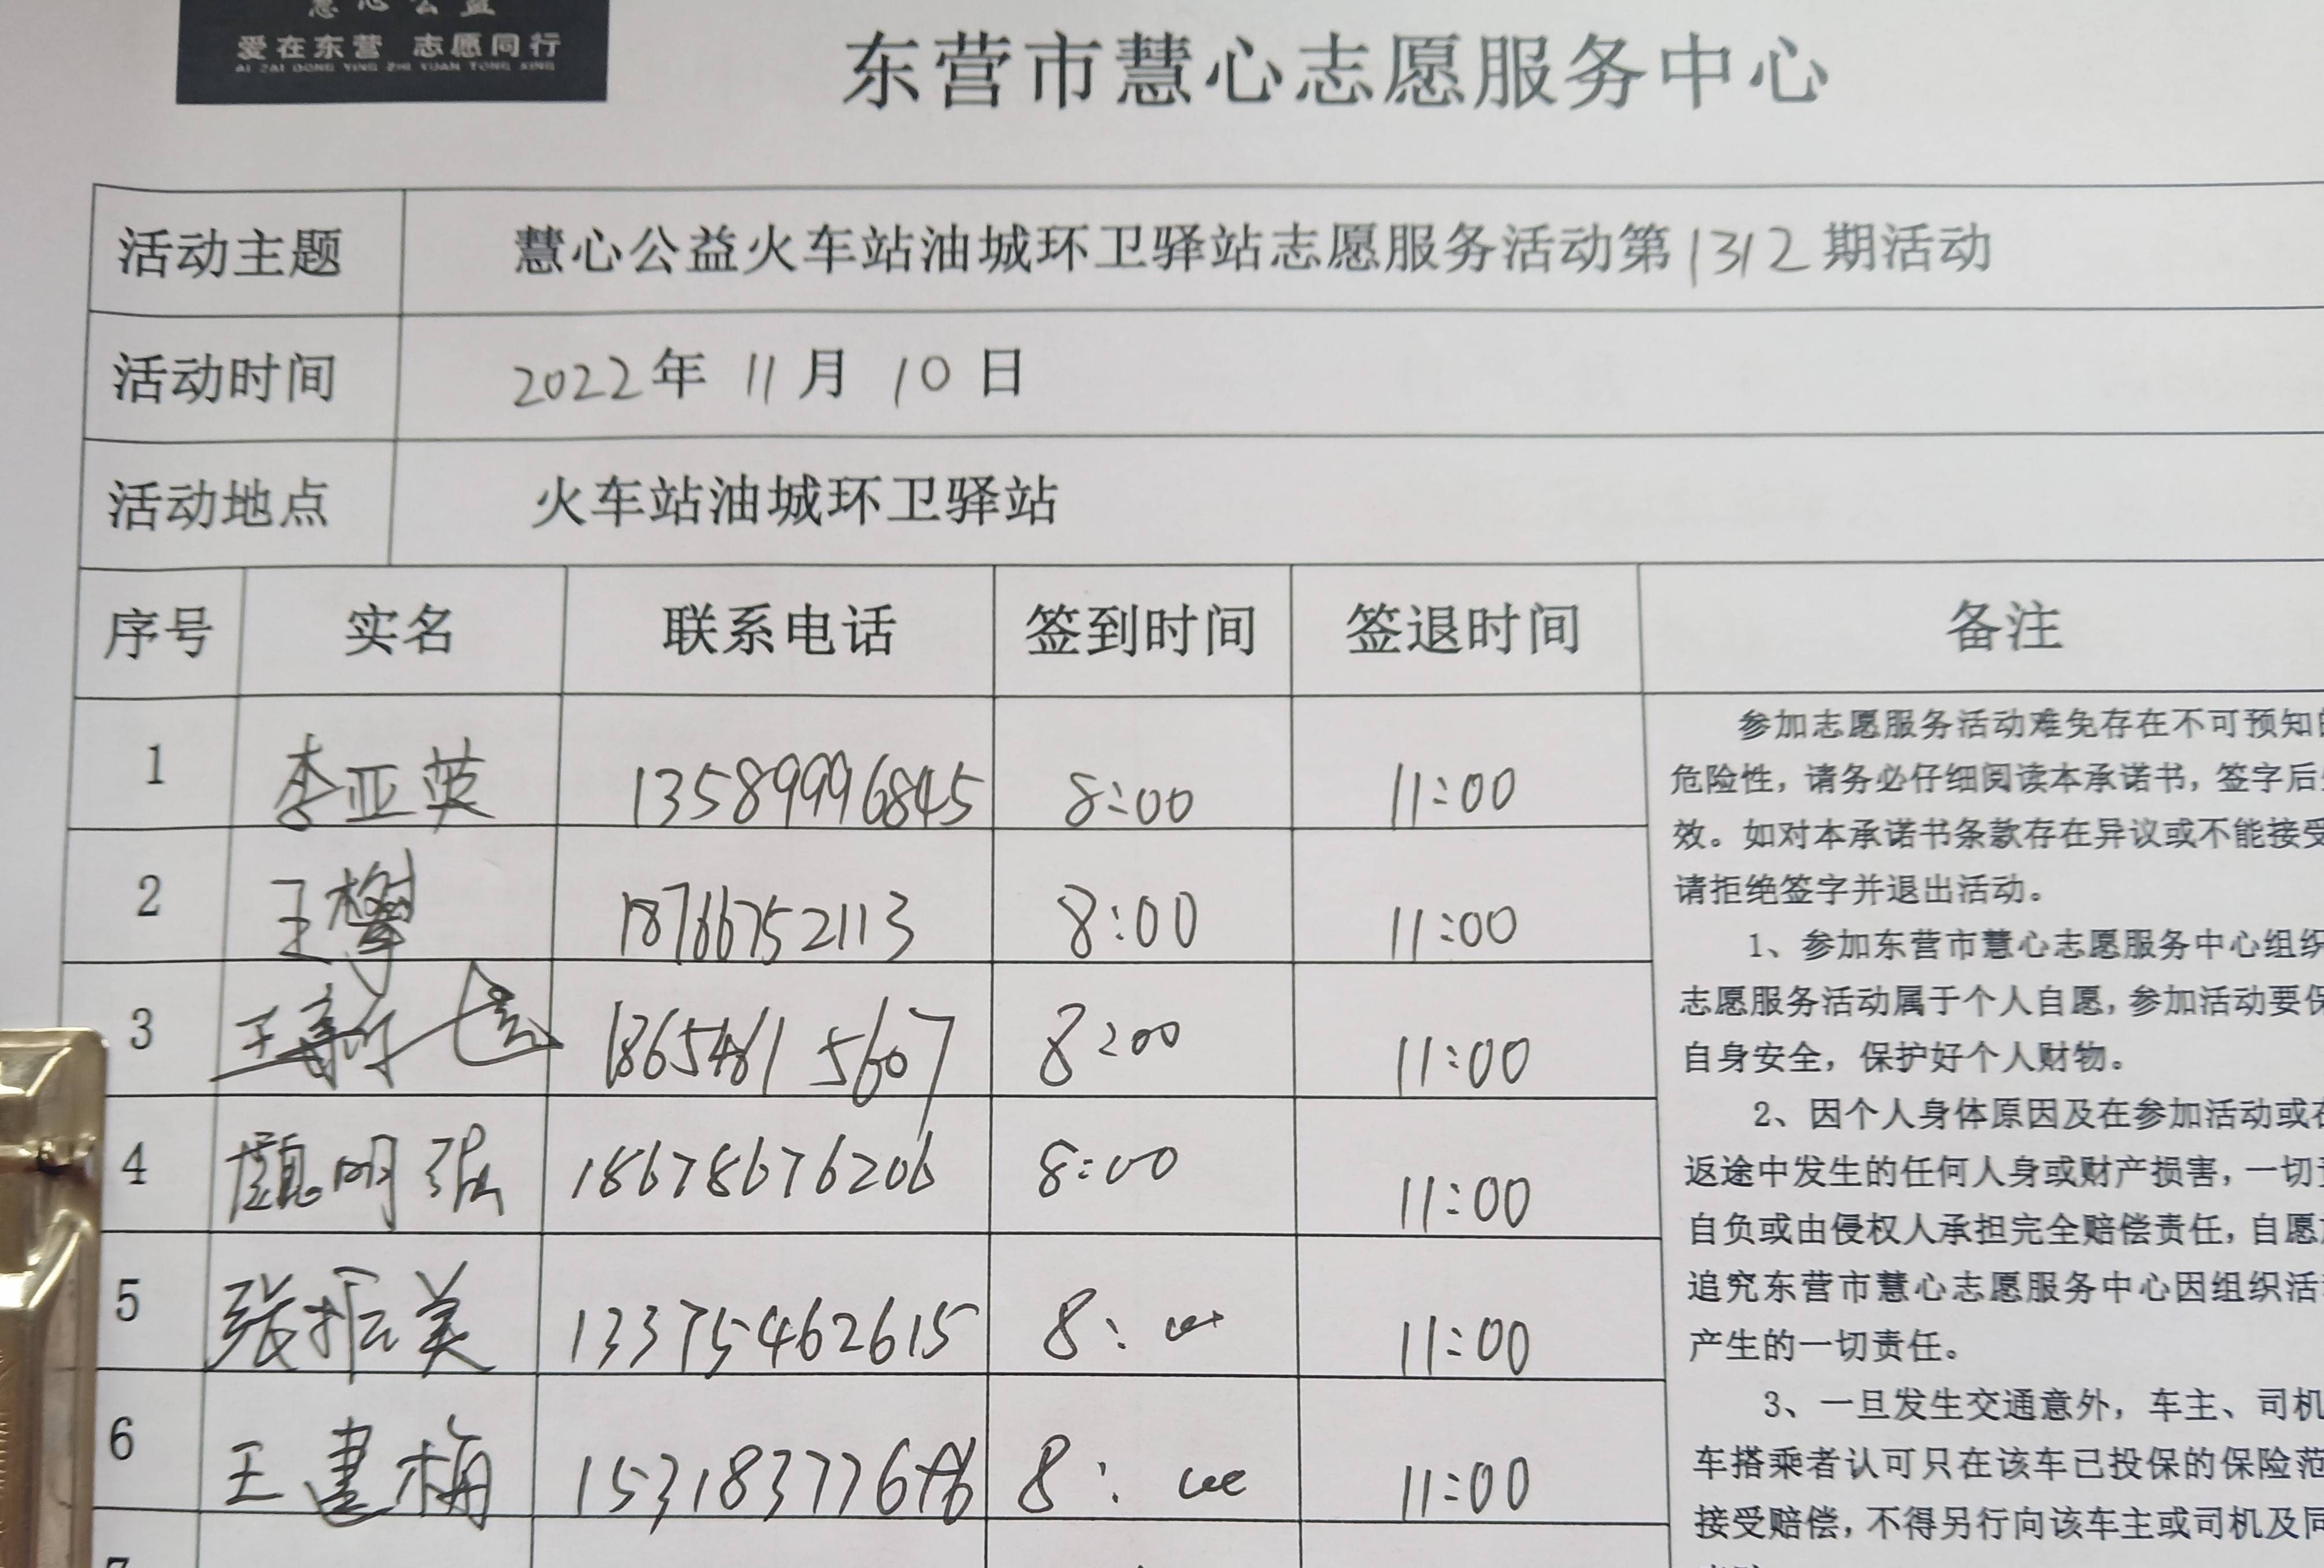 慧心公益
爱在东营 志愿同行
AI ZAI DONG YING ZHI YUAN TONG XING
东营市慧心志愿服务中心
活动主题 慧心公益火车站油城环卫驿站志愿服务活动第1312期活动
活动时间 2022年 11月 10日
活动地点 火车站油城环卫驿站
序号 实名 联系电话 签到时间 签退时间 备注
1 李亚英 13589996845 8:00 11:00
2 王 18766752113 8:00 11:00
3 王 18654615607 8:00 11:00
4 明强 18678676206 8:00 11:00
5 张振美 13375462615 8: 11:00
6 王建梅 153183776 8: 11:00
参加志愿服务活动难免存在不可预知
危险性，请务必仔细阅读本承诺书，签字后
效。如对本承诺书条款存在异议或不能接受
请拒绝签字并退出活动。
1、参加东营市慧心志愿服务中心组织
志愿服务活动属于个人自愿，参加活动要保
自身安全，保护好个人财物。
2、因个人身体原因及在参加活动或在
返途中发生的任何人身或财产损害，一切
自负或由侵权人承担完全赔偿责任，自愿
追究东营市慧心志愿服务中心因组织活
产生的一切责任。
3、一旦发生交通意外，车主、司机
车搭乘者认可只在该车已投保的保险范
接受赔偿，不得另行向该车主或司机及同